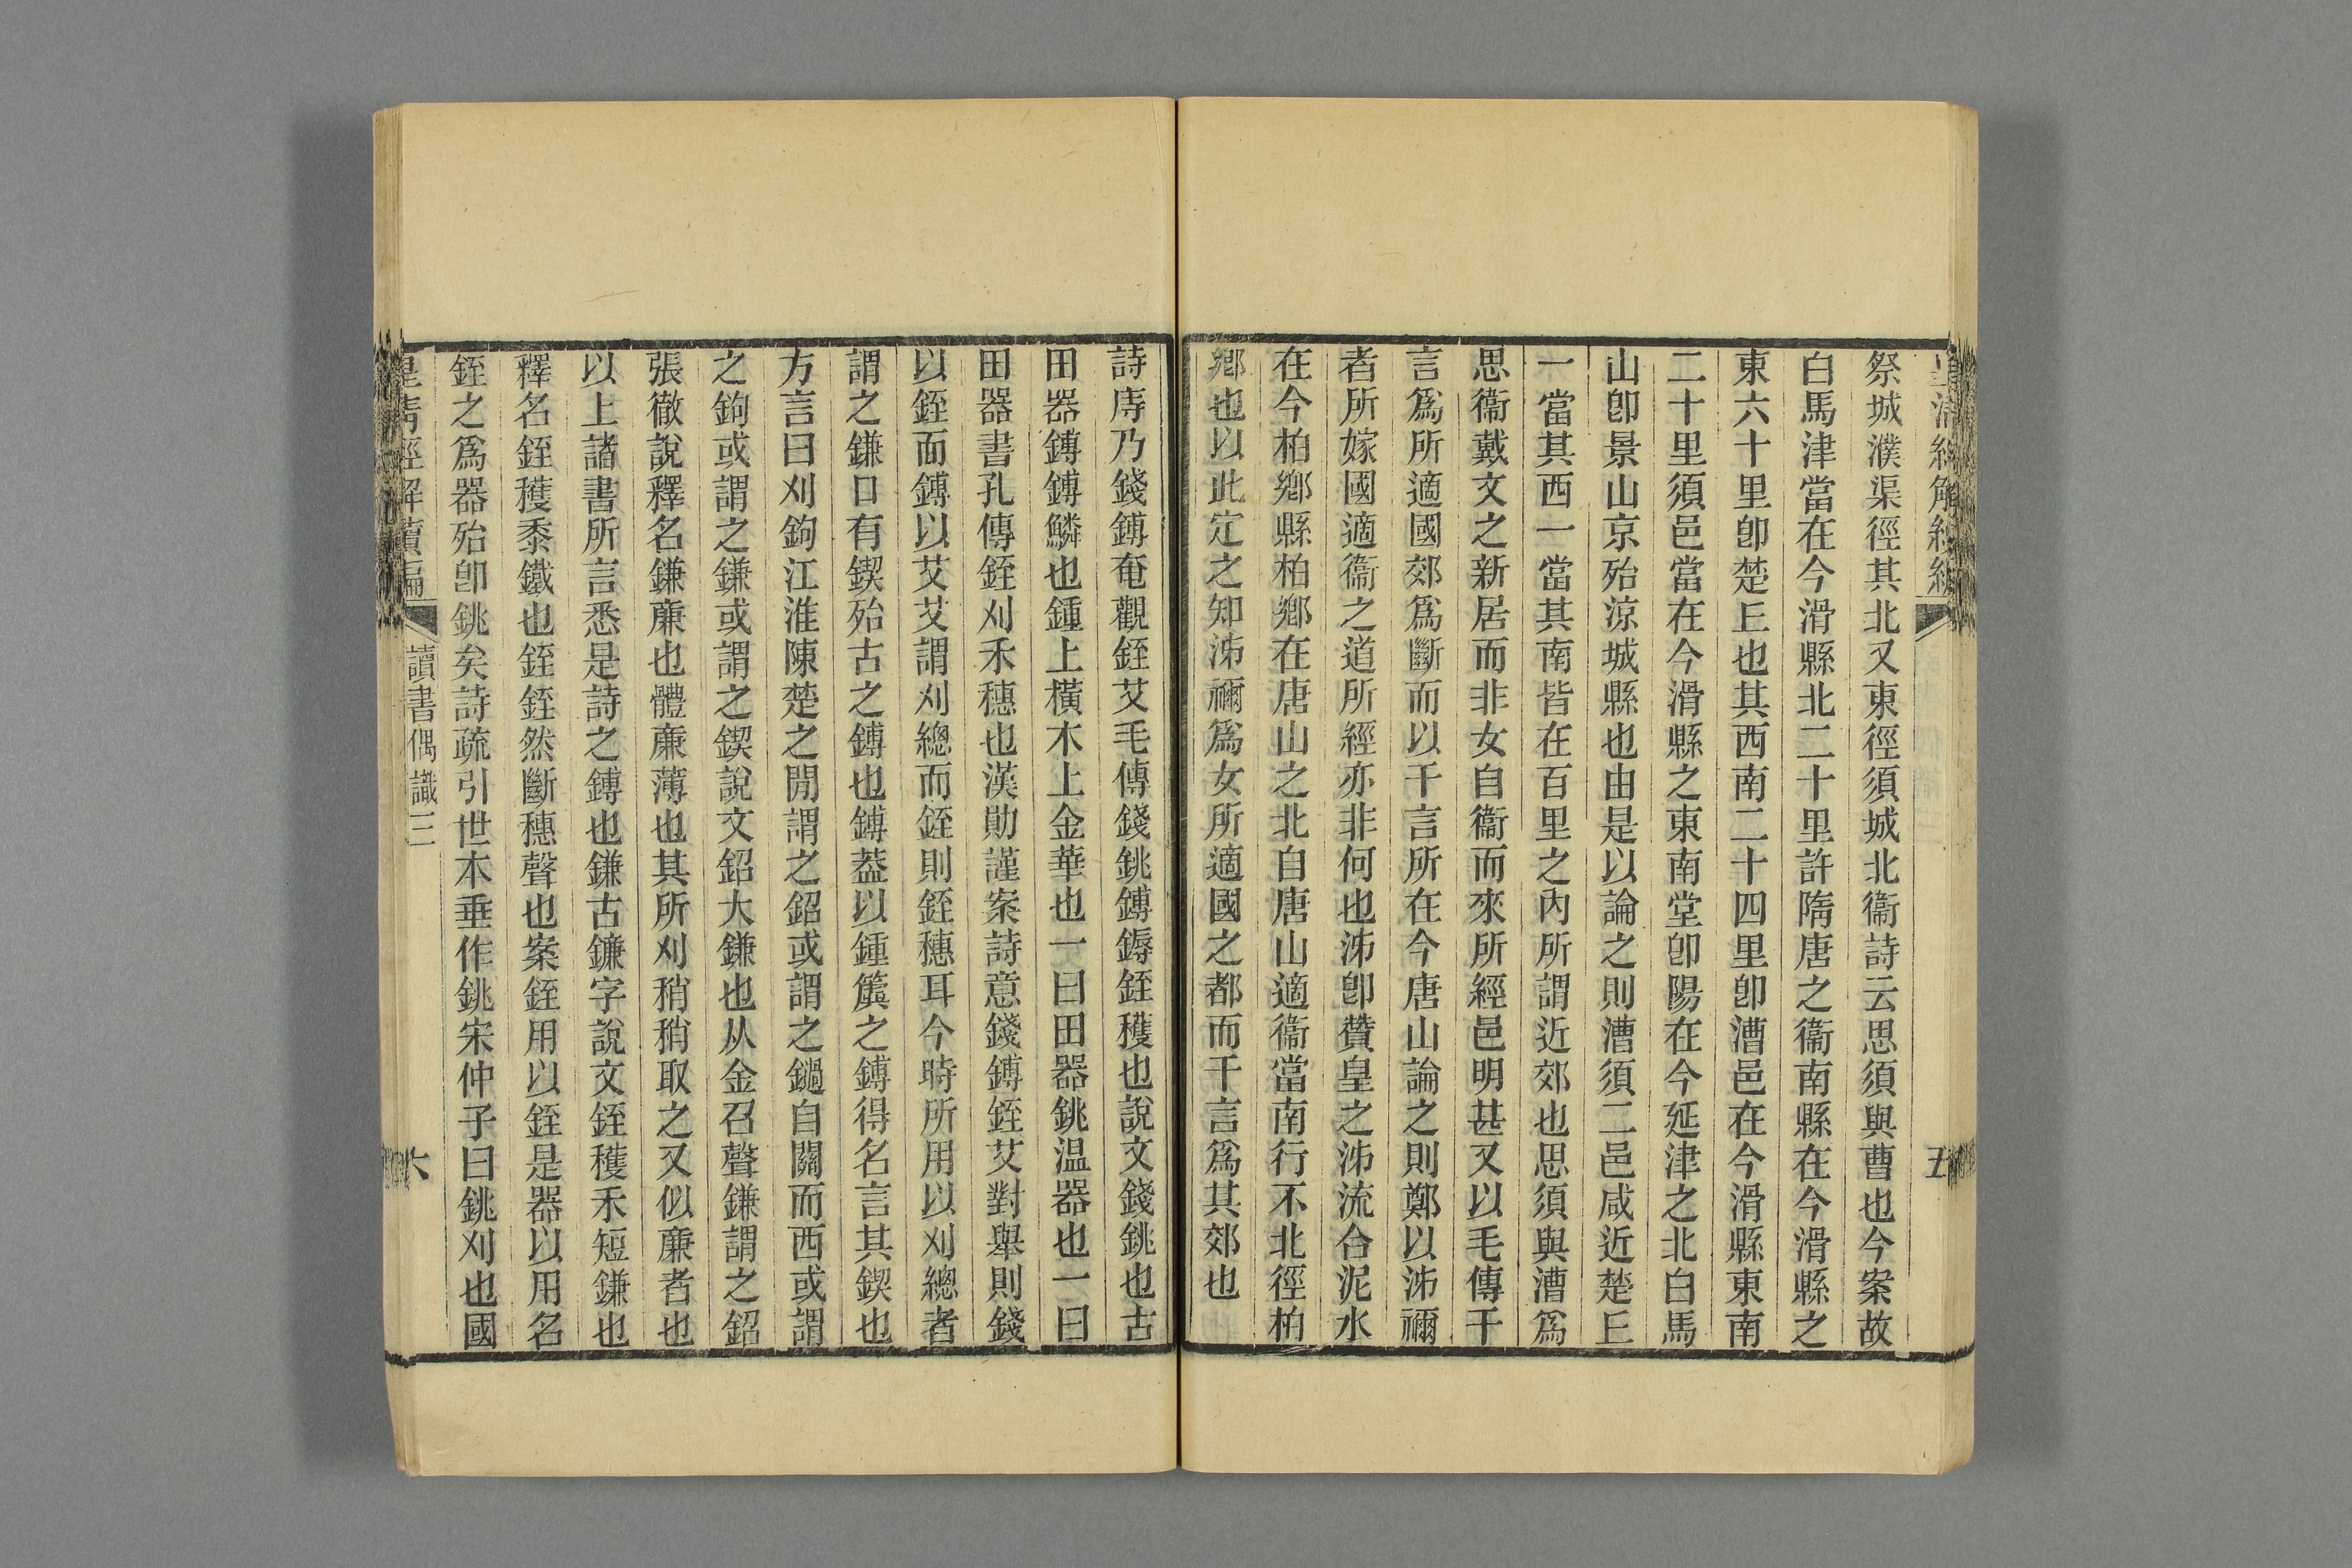 祭城濮渠徑其北又東徑須城北衞詩云思須與曹也今案故
白馬津當在今滑縣北二十里許隋唐之衞南縣在今滑縣之
東六十里卽楚丘也其西南二十四里卽漕邑在今滑縣東南
二十里須邑當在今滑縣之東南堂卽陽在今延津之北白馬
山卽景山京殆涼城縣也由是以論之則漕須二邑咸近楚丘
一當其西一當其南皆在百里之內所謂近郊也思須與漕爲
思衞戴文之新居而非女自衞而來所經邑明甚又以毛傳干
言爲所適國郊爲斷而以干言所在今唐山論之則鄭以泲禰
者所嫁國適衞之道所經亦非何也泲卽贊皇之泲流合泥水
在今柏鄉縣柏鄉在唐山之北自唐山適衞當南行不北徑柏
鄉也以此定之知泲禰爲女所適國之都而干言爲其郊也
詩庤乃錢鎛奄觀銍艾毛傳錢銚鎛鎒銍穫也說文錢銚也古
田器鎛鎛鱗也鍾上橫木上金華也一曰田器銚温器也一曰
田器書孔傳銍刈禾穗也漢勛謹案詩意錢鎛銍艾對舉則錢
以銍而鎛以艾艾謂刈總而銍則銍穗耳今時所用以刈總者
謂之鎌口有鍥殆古之鎛也鎛葢以鍾簴之鎛得名言其鍥也
方言曰刈鉤江淮陳楚之閒謂之鉊或謂之鐹自關而西或謂
之鉤或謂之鎌或謂之鍥說文鉊大鎌也从金召聲鎌謂之鉊
張徹說釋名鎌廉也體廉薄也其所刈稍稍取之又似廉者也
以上諸書所言悉是詩之鎛也鎌古鐮字說文銍穫禾短鎌也
釋名銍穫黍鐵也銍銍然斷穗聲也案銍用以銍是器以用名
銍之爲器殆卽銚矣詩疏引世本垂作銚宋仲子曰銚刈也國
皇清經解續編
讀書偶識三
六